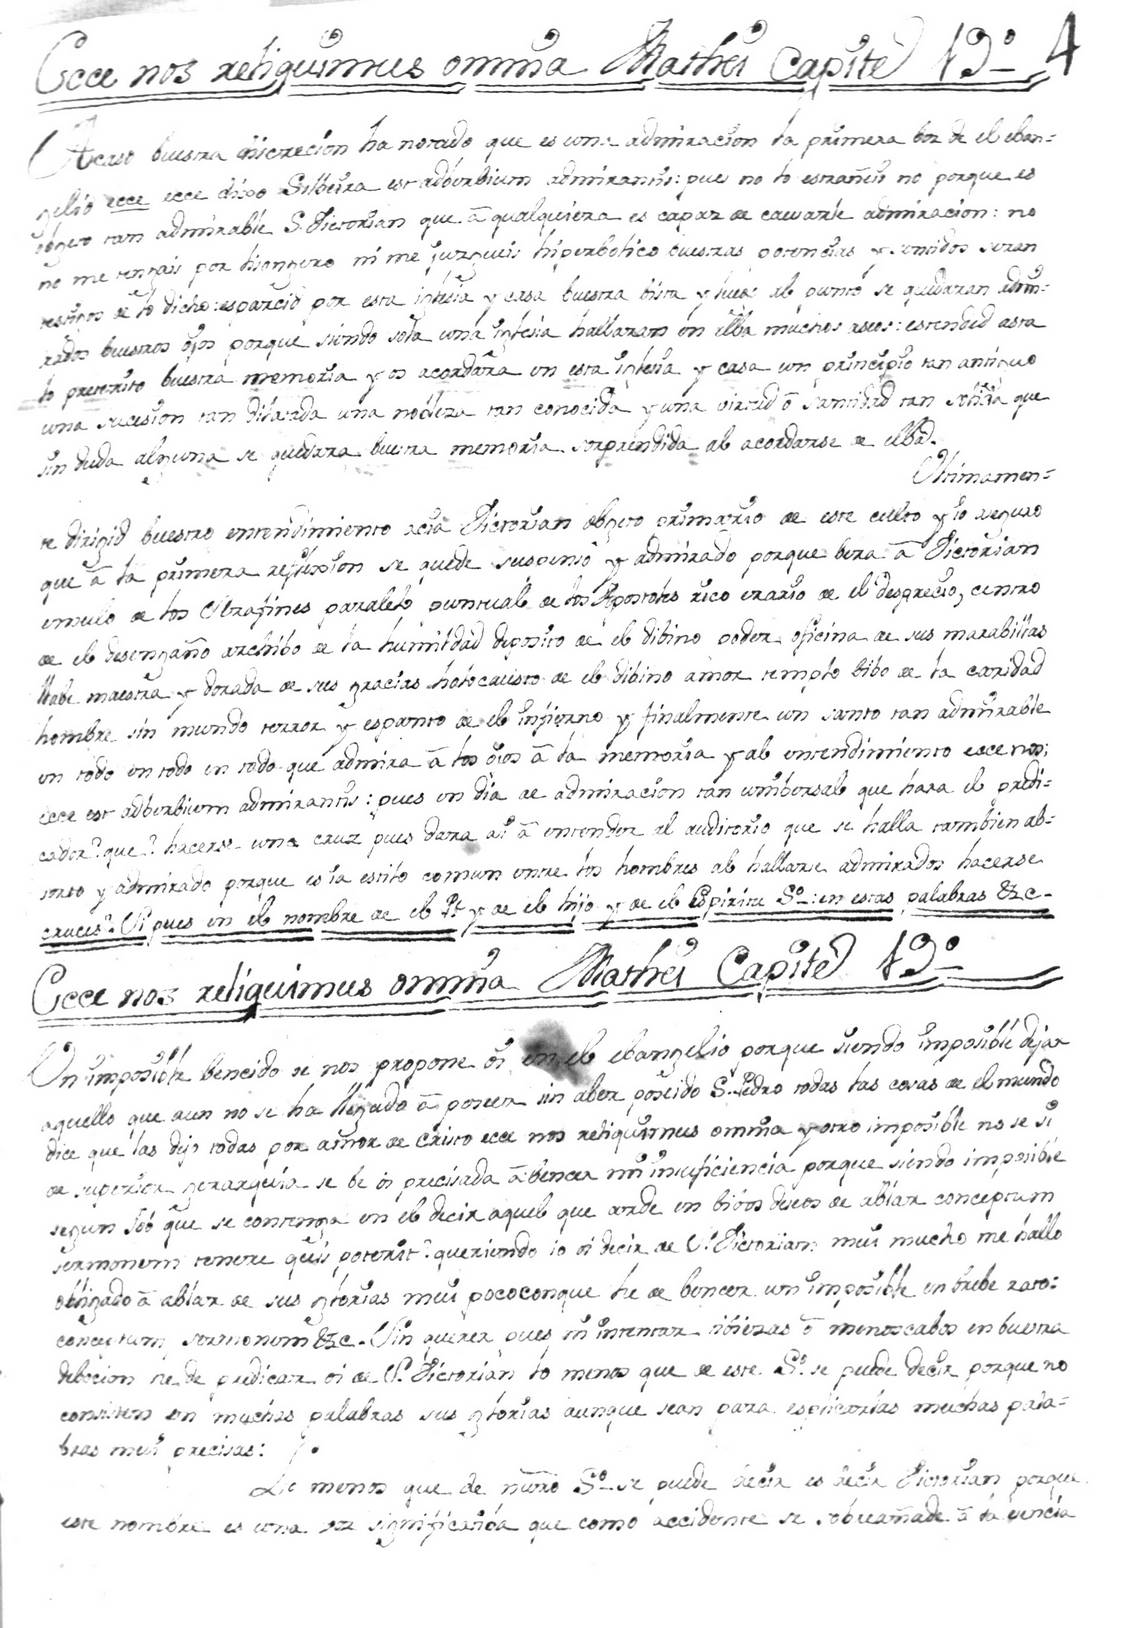 Ecce nos reliquimus omnia Mathei Capite 19º 4
Acaso buestra discrecion ha notado que es una admiracion la primera boz de el eban-
gelio ecce ecce dixo Silbeira est adberbium admirantis: pues no lo estrañeis no porque es
objeto tan admirable S. Victorian que â qualquiera es capaz de causarle admiracion: no
ne me tengais por lisongero ni me jurgueis hiperbolico buestras potencias y sentidos seran
testigos de lo dicho: esparcid por esta iglesia y casa buestra bista y luego al punto se quedaran admi-
rados buestros ojos porque siendo sola una iglesia hallaran en ella muchos aseos: estended asta
lo preterito buestra memoria y os acordara en esta iglesia y casa un principio tan antiguo
una sucesion tan dilatada una nobleza tan conocida y una virtud ô santidad tan solida que
sin duda alguna se quedara buestra memoria sorprendida al acordarse de ella.
Ultimamen-
te dirigid buestro entendimiento acia Victorian objeto primario de este culto y io seguro
que â la primera reflexion se quede suspenso y admirado porque bera â Victorian
emulo de los Serafines paralelo puntual de los Apostoles rico erario de el desprecio, centro
de el desengaño archibo de la humildad deposito de el dibino poder oficina de sus marabillas
llabe maestra y dorada de sus gracias holocausto de el dibino amor templo bibo de la caridad
hombre sin mundo terror y espanto de el infierno y finalmente un santo tan admirable
en todo en todo en todo que admira â los ojos â la memoria y al entendimiento ecce nos:
ecce est adberbium admirantis: pues en dia de admiracion tan unibersal que hara el predi-
cador? que? hacerse una cruz pues dara asi â entender al auditorio que se halla tambien ab-
sorto y admirado porque es ia estilo comun entre los hombres al hallarse admirados hacerse
cruces? Si pues en el nombre de el Pe y de el hijo y de el Espiritu Sº: en estas palabras &c-
Ecce nos reliquimus omnia Mathei Capite 19º
Un imposible bencido se nos propone oi en el ebangelio porque siendo imposible dejar
aquello que aun no se ha llegado â poseer sin aber poseido S. Pedro todas las cosas de el mundo
dice que las dejo todas por amor de Cristo ecce nos reliquimus omnia y otro imposible no se si
de superior gerarquia se be oi precisada â bencer mi insuficiencia porque siendo imposible
segun Job que se contenga en el decir aquel que arde en bibos deseos de ablar conceptum
sermonem tenere quis poterit? queriendo io oi decir de S. Victorian mui mucho me hallo
obligado â ablar de sus glorias mui poco conque he de bencer un imposible en brebe rato:
conceptum sermonem &c. Sin querer pues ni intentar ô menoscabos en buestra
debocion he de predicar oi de S. Victorian lo menos que de este Sº. se puede decir porque no
consisten en muchas palabras sus glorias aunque sean para esplicarlas muchas pala-
bras mui precisas:
Lo menos que de nuestro Sº se puede decir es decir Victorian porque
este nombre es una voz significatiba que como accidente se sobreañade â la esencia